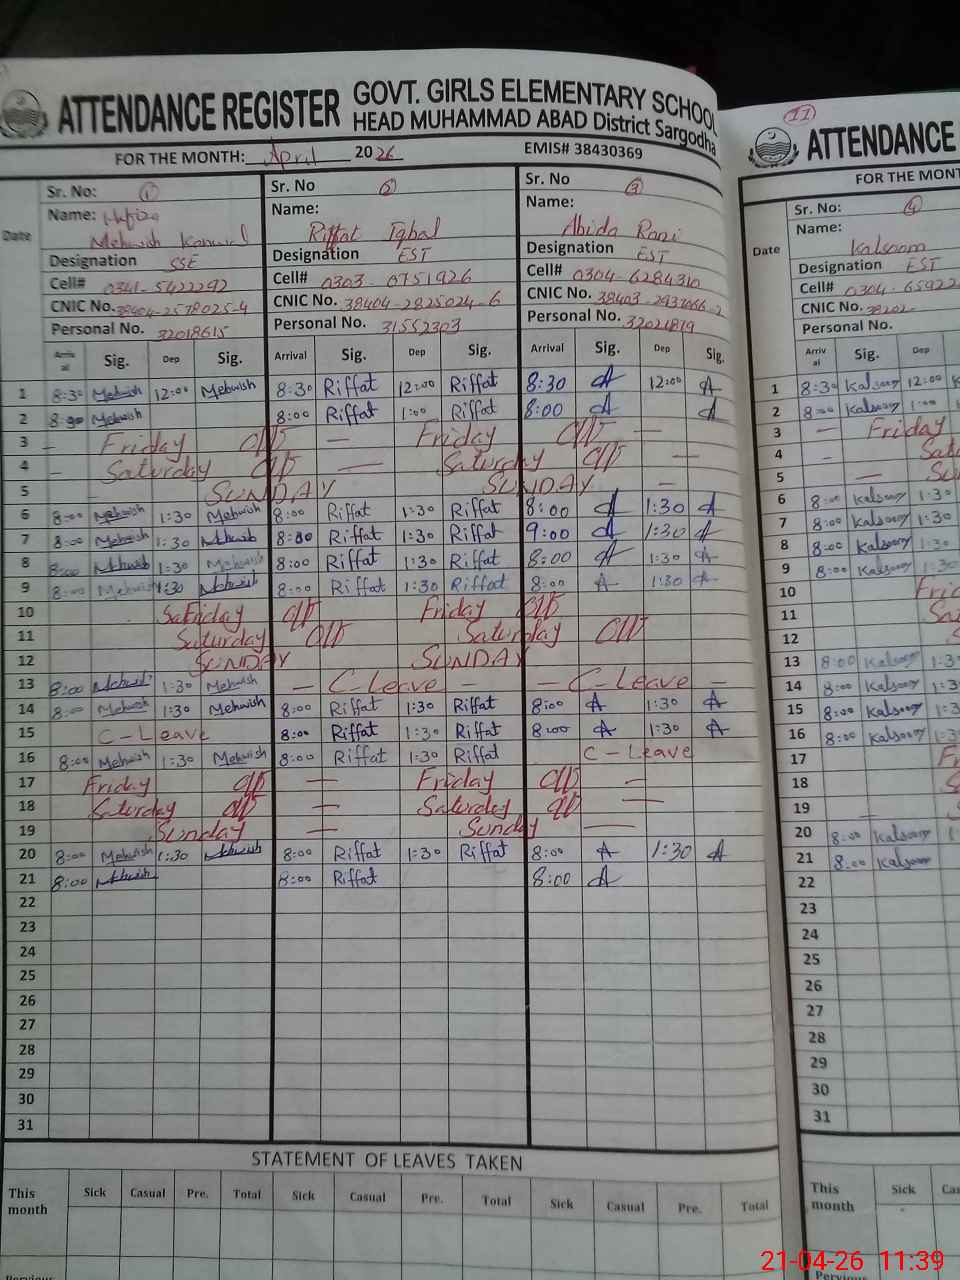 ATTENDANCE REGISTER GOVT. GIRLS ELEMENTARY SCHOOL
HEAD MUHAMMAD ABAD District Sargodha
FOR THE MONTH: April 2026 EMIS# 38430369
Date
Sr. No: 1 Sr. No 2 Sr. No 3
Name: Name: Name:
Mehwish Kanwal Riffat Iqbal Abida Rani
Designation SSE Designation EST Designation EST
Cell# 0341-5422292 Cell# 0303-0751926 Cell# 0304-6284310
CNIC No. 38404-2578025-4 CNIC No. 38404-2825024-6 CNIC No.
Personal No. 32018615 Personal No. 31552303 Personal No. 32021819
Arrival Sig. Dep Sig. Arrival Sig. Dep Sig. Arrival Sig. Dep Sig.
1 8:30 Mehwish 12:00 Mehwish 8:30 Riffat 12:00 Riffat 8:30 A 12:00 A
2 8:00 Mehwish 8:00 Riffat 1:00 Riffat 8:00 A A
3 — Friday Off — Friday Off —
4 — Saturday Off — Saturday Off —
5 SUNDAY SUNDAY —
6 8:00 Mehwish 1:30 Mehwish 8:00 Riffat 1:30 Riffat 8:00 A 1:30 A
7 8:00 Mehwish 1:30 Mehwish 8:00 Riffat 1:30 Riffat 9:00 A 1:30 A
8 8:00 Mehwish 1:30 Mehwish 8:00 Riffat 1:30 Riffat 8:00 A 1:30 A
9 8:00 Mehwish 1:30 Mehwish 8:00 Riffat 1:30 Riffat 8:00 A 1:30 A
10 Friday Off Friday Off
11 Saturday Off Saturday Off
12 SUNDAY SUNDAY
13 8:00 Mehwish 1:30 Mehwish — C-Leave — — C-Leave —
14 8:00 Mehwish 1:30 Mehwish 8:00 Riffat 1:30 Riffat 8:00 A 1:30 A
15 C-Leave 8:00 Riffat 1:30 Riffat 8:00 A 1:30 A
16 8:00 Mehwish 1:30 Mehwish 8:00 Riffat 1:30 Riffat C-Leave
17 Friday Off — Friday Off —
18 Saturday Off — Saturday Off —
19 Sunday — Sunday —
20 8:00 Mehwish 1:30 Mehwish 8:00 Riffat 1:30 Riffat 8:00 A 1:30 A
21 8:00 Mehwish 8:00 Riffat 8:00 A
22
23
24
25
26
27
28
29
30
31
STATEMENT OF LEAVES TAKEN
This month Sick Casual Pre. Total Sick Casual Pre. Total Sick Casual Pre. Total
11
ATTENDANCE
FOR THE MONT
Date
Sr. No: 4
Name:
Kalsoom
Designation EST
Cell# 0304-65922
CNIC No. 38202-
Personal No.
Arrival Sig. Dep
1 8:30 Kalsoom 12:00 K
2 8:00 Kalsoom 1:00
3 — Friday
4 -
5 —
6 8:00 Kalsoom 1:30
7 8:00 Kalsoom 1:30
8 8:00 Kalsoom 1:30
9 8:00 Kalsoom 1:30
10
11
12
13 8:00 Kalsoom 1:3
14 8:00 Kalsoom 1:3
15 8:00 Kalsoom 1:3
16 8:00 Kalsoom 1:3
17
18
19
20 8:00 Kalsoom
21 8:00 Kalsoom
22
23
24
25
26
27
28
29
30
31
This month Sick
21-04-26 11:39